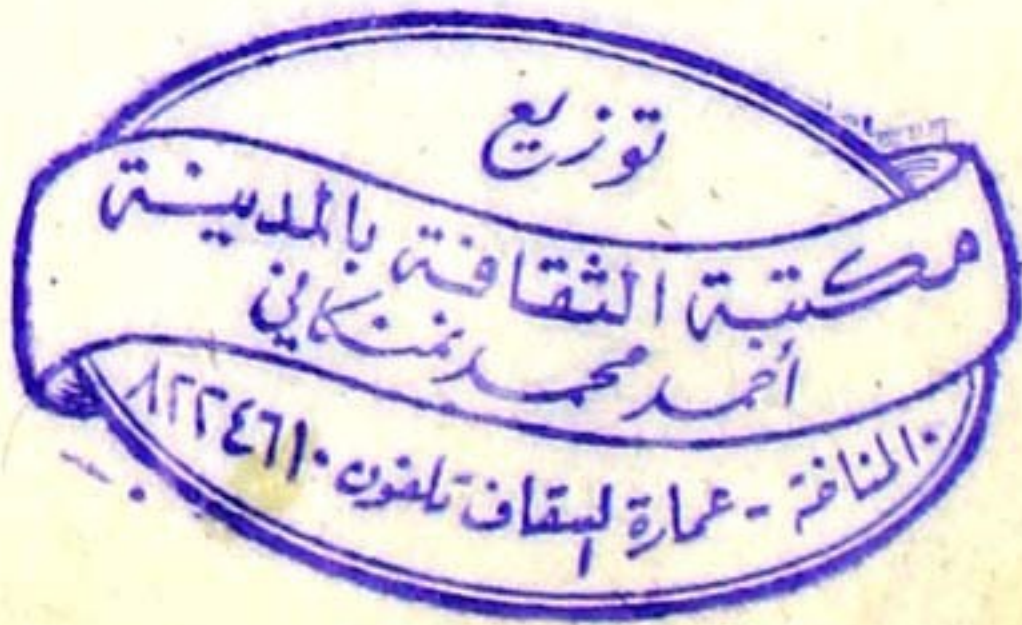 توزيع
مكتبة الثقافة بالمدينة
أحمد محمد نمنكاني
المناخة - عمارة السقاف تلفون ٨٢٢٤٦١٠